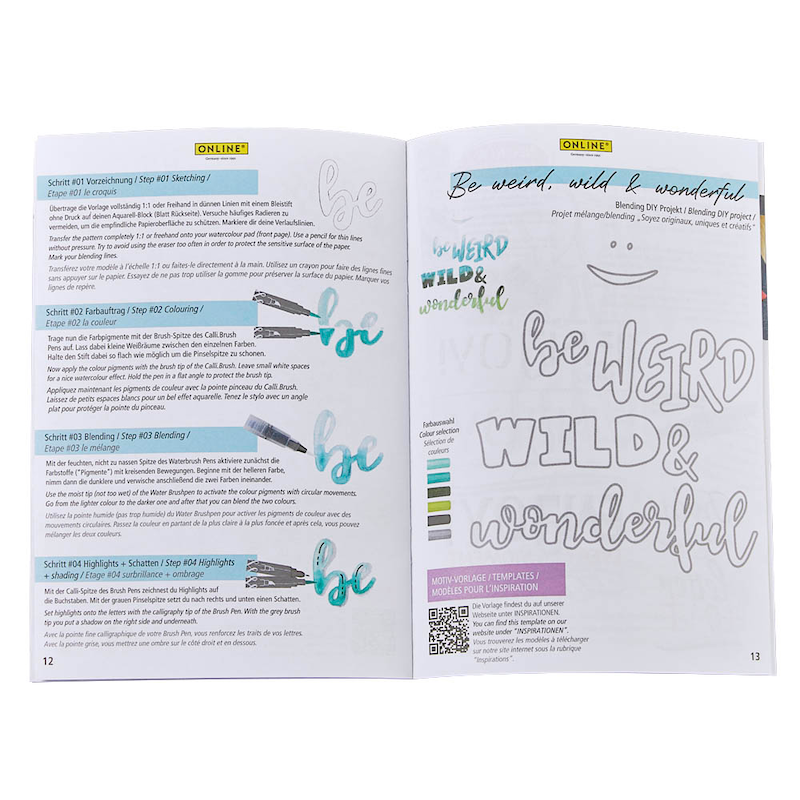 ONLINE®
Germany since 1991
Schritt #01 Vorzeichnung / Step #01 Sketching /
Etape #01 le croquis
be
Übertrage die Vorlage vollständig 1:1 oder Freihand in dünnen Linien mit einem Bleistift
ohne Druck auf deinen Aquarell-Block (Blatt Rückseite). Versuche häufiges Radieren zu
vermeiden, um die empfindliche Papieroberfläche zu schützen. Markiere deine Verlaufslinien.
Transfer the pattern completely 1:1 or freehand onto your watercolour pad (front page). Use a pencil for thin lines
without pressure. Try to avoid using the eraser too often in order to protect the sensitive surface of the paper.
Mark your blending lines.
Transférez votre modèle à l'échelle 1:1 ou faites-le directement à la main. Utilisez un crayon pour faire des lignes fines
sans appuyer sur le papier. Essayez de ne pas trop utiliser la gomme pour préserver la surface du papier. Marquer vos
lignes de repère.
Schritt #02 Farbauftrag / Step #02 Colouring /
Etape #02 la couleur
be
Trage nun die Farbpigmente mit der Brush-Spitze des Calli.Brush
Pens auf. Lass dabei kleine Weißräume zwischen den einzelnen Farben.
Halte den Stift dabei so flach wie möglich um die Pinselspitze zu schonen.
Now apply the colour pigments with the brush tip of the Calli.Brush. Leave small white spaces
for a nice watercolour effect. Hold the pen in a flat angle to protect the brush tip.
Appliquez maintenant les pigments de couleur avec la pointe pinceau du Calli.Brush.
Laissez de petits espaces blancs pour un bel effet aquarelle. Tenez le stylo avec un angle
plat pour protéger la pointe du pinceau.
Schritt #03 Blending / Step #03 Blending /
Etape #03 le mélange
be
Mit der feuchten, nicht zu nassen Spitze des Waterbrush Pens aktiviere zunächst die
Farbstoffe ("Pigmente") mit kreisenden Bewegungen. Beginne mit der helleren Farbe,
nimm dann die dunklere und verwische anschließend die zwei Farben ineinander.
Use the moist tip (not too wet) of the Water Brushpen to activate the colour pigments with circular movements.
Go from the lighter colour to the darker one and after that you can blend the two colours.
Utilisez la pointe humide (pas trop humide) du Water Brushpen pour activer les pigments de couleur avec des
mouvements circulaires. Passez la couleur en partant de la plus claire à la plus foncée et après cela, vous pouvez
mélanger les deux couleurs.
Schritt #04 Highlights + Schatten / Step #04 Highlights
+ shading / Etage #04 surbrillance + ombrage
be
Mit der Calli-Spitze des Brush Pens zeichnest du Highlights auf
die Buchstaben. Mit der grauen Pinselspitze setzt du nach rechts und unten einen Schatten.
Set highlights onto the letters with the calligraphy tip of the Brush Pen. With the grey brush
tip you put a shadow on the right side and underneath.
Avec la pointe fine calligraphique de votre Brush Pen, vous renforcez les traits de vos lettres.
Avec la pointe grise, vous mettrez une ombre sur le côté droit et en dessous.
12
ONLINE®
Germany since 1991
Be weird, wild & wonderful
Blending DIY Projekt / Blending DIY project /
Projet mélange/blending „Soyez originaux, uniques et créatifs"
be WEIRD
WILD &
wonderful
be WEIRD
WILD &
wonderful
Farbauswahl
Colour selection
Sélection de
couleurs
MOTIV-VORLAGE / TEMPLATES /
MODÈLES POUR L'INSPIRATION
Die Vorlage findest du auf unserer
Webseite unter INSPIRATIONEN.
You can find this template on our
website under "INSPIRATIONEN".
Vous trouverez les modèles à télécharger
sur notre site internet sous la rubrique
"Inspirations".
13